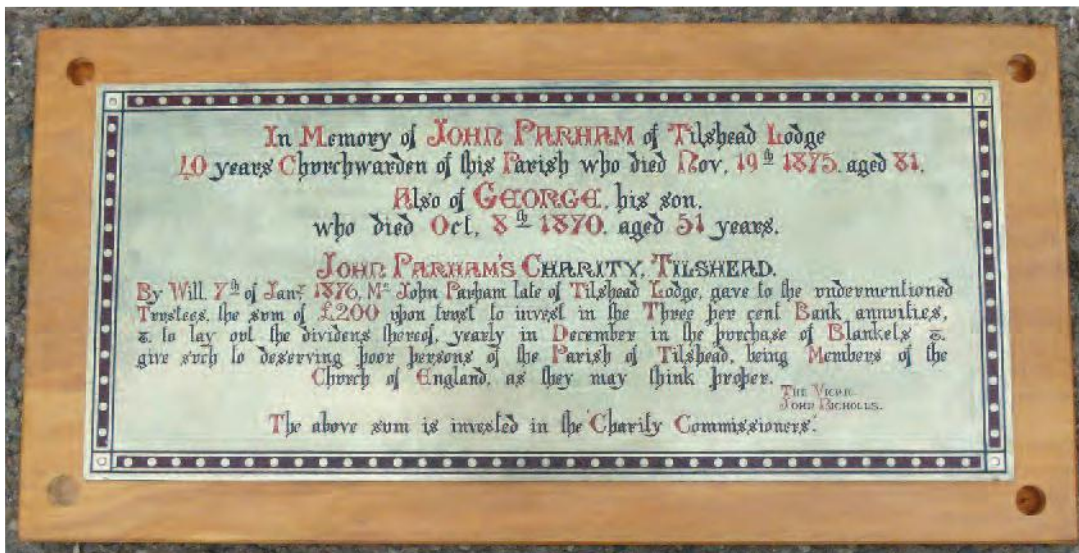 In Memory of JOHN PARHAM of Tilshead Lodge
40 years Churchwarden of this Parish who died Nov. 19th 1875. aged 81.
Also of GEORGE, his son,
who died Oct. 8th 1870. aged 51 years.
JOHN PARHAM'S CHARITY, TILSHEAD.
By Will, 7th of Jany 1876, Mr John Parham late of Tilshead Lodge, gave to the undermentioned
Trustees, the sum of £200 upon trust to invest in the Three per cent Bank annuities,
& to lay out the dividens thereof, yearly in December in the purchase of Blankets &
give such to deserving poor persons of the Parish of Tilshead, being Members of the
Church of England, as they may think proper.
THE VICAR.
JOHN NICHOLLS.
The above sum is invested in the 'Charity Commissioners'.